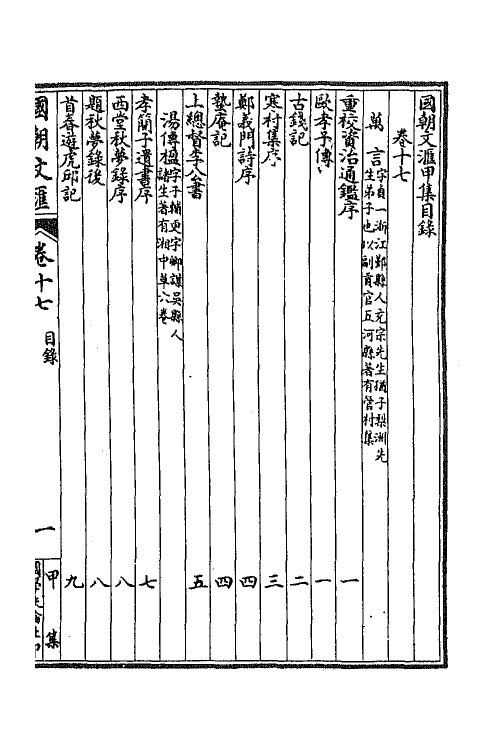 國朝文滙甲集目錄
卷十七
萬言字貞一浙江鄞縣人充宗先生猶子梨洲先
生弟子也以副貢官五河縣著有管村集
重校資治通鑑序 一
歐孝子傳 一
古錢記 二
寒村集序 三
鄭義門詩序 四
蟄庵記 四
上總督李公書 五
湯傳楹字子輔更字卿謀吳縣人
諸生著有湘中草六卷
孝簡子遺書序 七
西堂秋夢錄序 八
題秋夢錄後 八
首春遊虎邱記 九
國朝文滙 卷十七 目錄 一 甲集